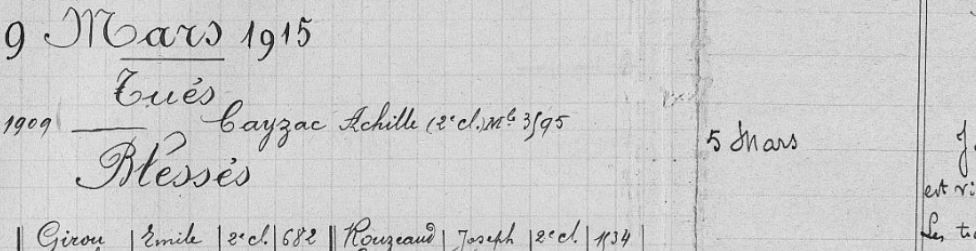 9 Mars 1915
Tués
1909 Cayzac Achille (2e cl.) Mle 3595
Blessés
5 Mars
est vi
Les
Girou Emile 2e cl. 682 Rouzeaud Joseph 2e cl. 1134